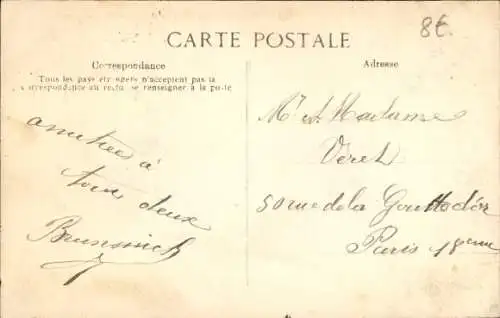 8€
CARTE POSTALE
Correspondance
Tous les pays étrangers n'acceptent pas la
correspondance au recto, se renseigner à la poste
Adresse
amitiées à
tous deux
Brunswich
Mr & Madame
Veret
50 rue de la Goutte d'or
Paris 18eme